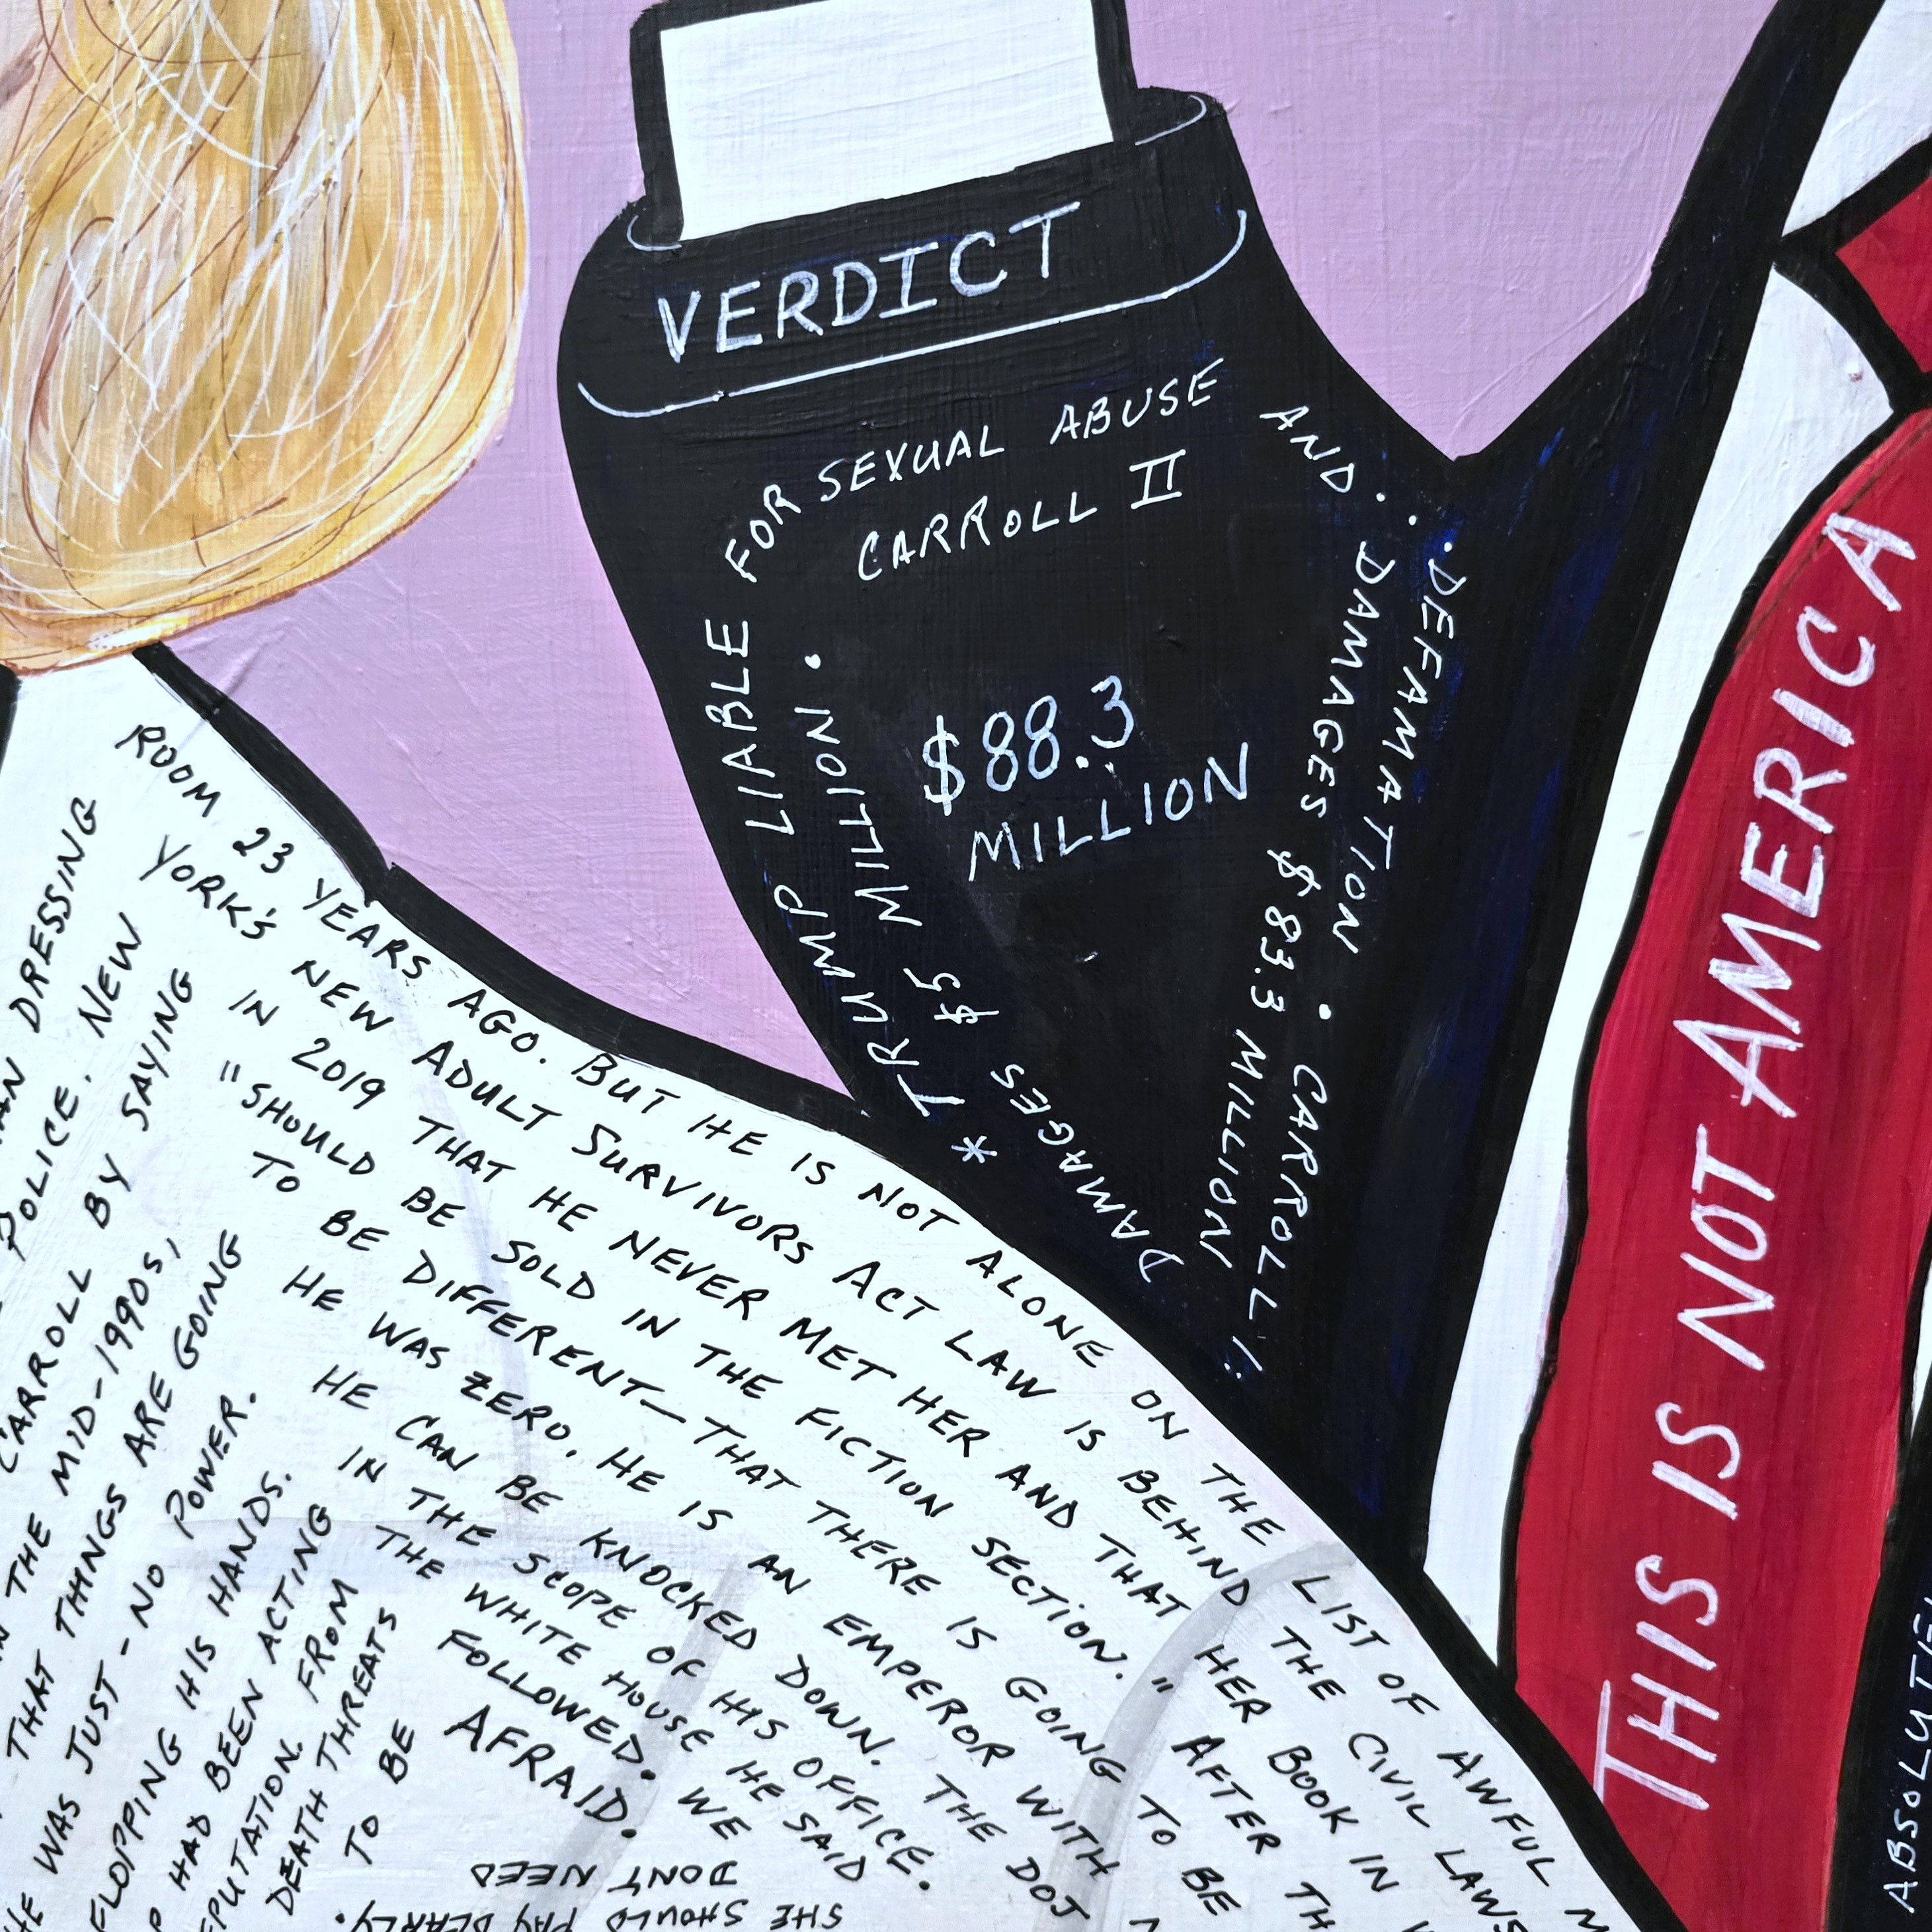 VERDICT
* TRUMP LIABLE FOR SEXUAL ABUSE AND
• DEFAMATION • CARROLL I:
DAMAGES $5 MILLION • CARROLL II
DAMAGES $83.3 MILLION
$88.3
MILLION
THIS IS NOT AMERICA
DRESSING ROOM 23 YEARS AGO. BUT HE IS NOT ALONE ON THE LIST OF AWFUL
POLICE. NEW YORK'S NEW ADULT SURVIVORS ACT LAW IS BEHIND THE CIVIL LAWS
CARROLL BY SAYING IN 2019 THAT HE NEVER MET HER AND THAT HER BOOK IN
THE MID-1990s, "SHOULD BE SOLD IN THE FICTION SECTION." AFTER
THAT THINGS ARE GOING TO BE DIFFERENT— THAT THERE IS GOING TO BE
HE WAS JUST - NO POWER. HE WAS ZERO. HE IS AN EMPEROR WITH
FLOPPING HIS HANDS. HE CAN BE KNOCKED DOWN. THE DOJ
HAD BEEN ACTING IN THE SCOPE OF HIS OFFICE.
FROM THE WHITE HOUSE HE SAID
SHE SHOULD PAY DEARLY.
DEATH THREATS FOLLOWED. WE
DONT NEED
TO BE AFRAID.